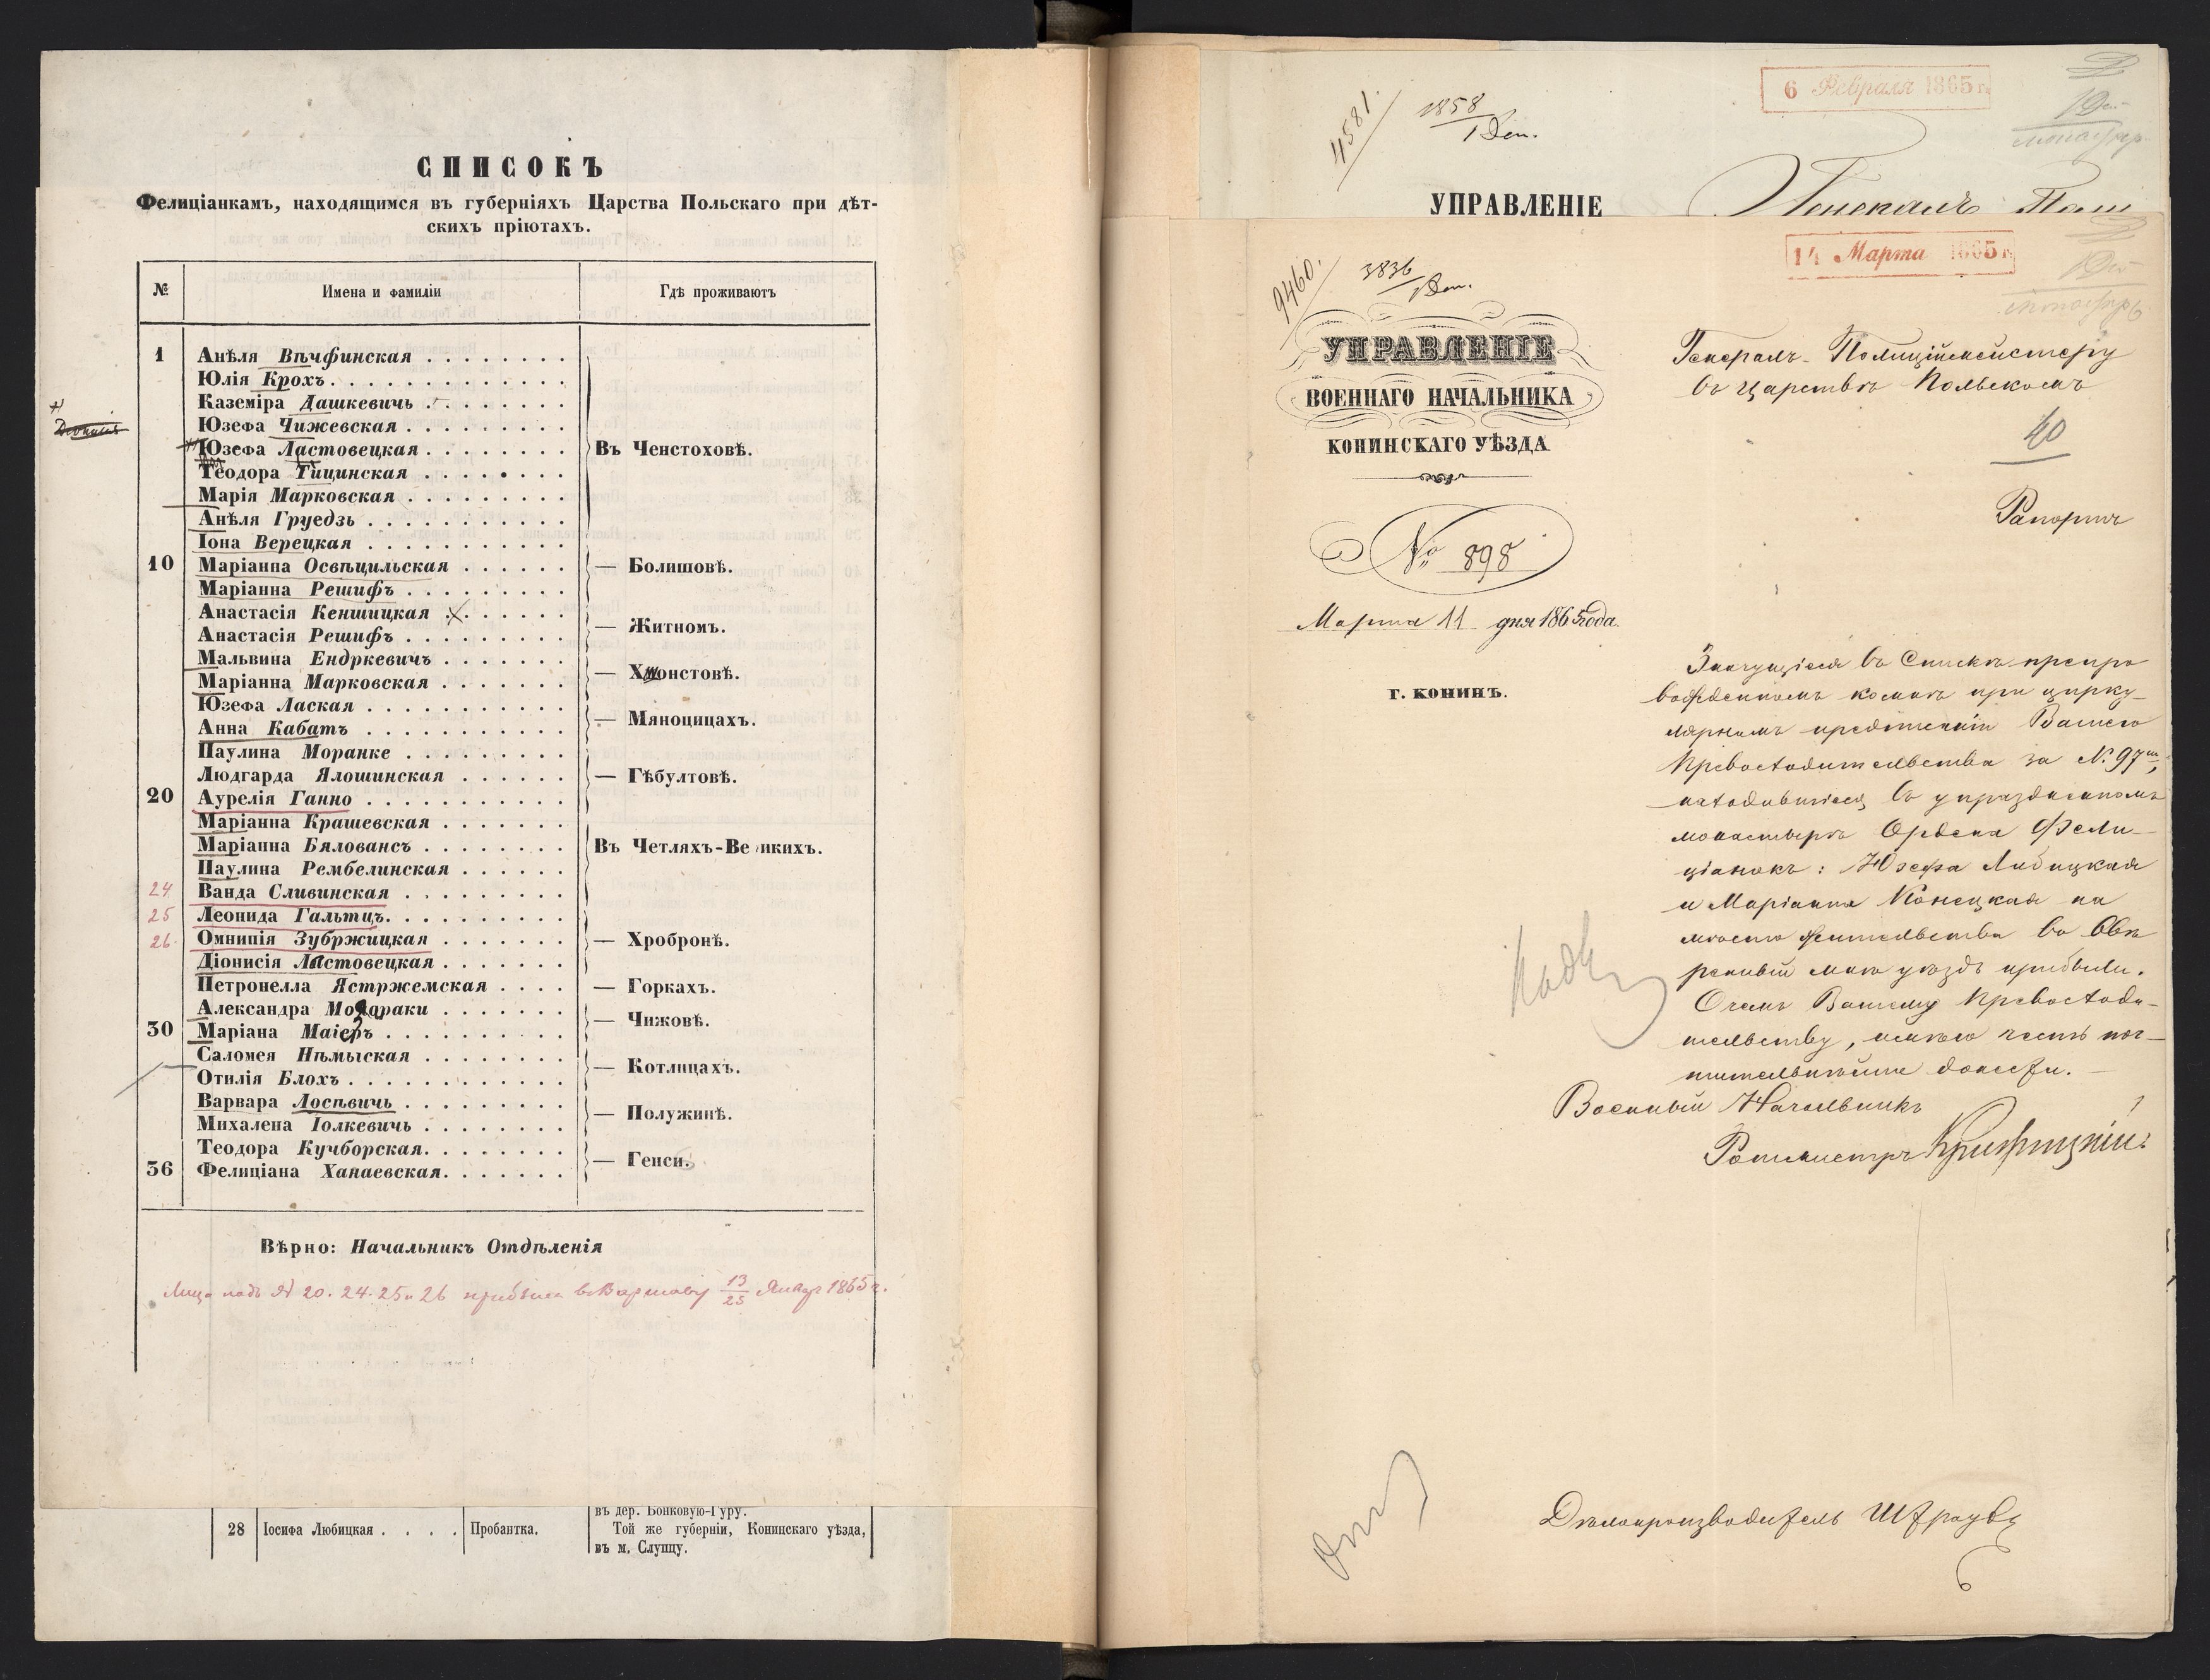 СПИСОКЪ
Фелиціанкамъ, находящимся въ губерніяхъ Царства Польскаго при дѣт-
скихъ пріютахъ.
№ Имена и фамиліи Гдѣ проживаютъ
1 Анѣля Вѣчфинская
Юлія Крохъ
Каземіра Дашкевичъ
Юзефа Чижевская
Юзефа Ластовецкая Въ Ченстоховѣ.
Теодора Тицинская
Марія Марковская
Анѣля Груедзь
Іона Верецкая
10 Маріанна Освѣцильская — Болишовѣ.
Маріанна Решифъ
Анастасія Кеншицкая
— Житномъ.
Анастасія Решифъ
Мальвина Ендркевичъ
— Хонстовѣ.
Маріанна Марковская
Юзефа Лаская
— Мяноцицахъ.
Анна Кабатъ
Паулина Моранке
Людгарда Ялошинская — Гѣбултовѣ.
20 Аурелія Ганно
Маріанна Крашевская
Маріанна Бяловансъ Въ Четляхъ-Великихъ.
Паулина Рембелинская
24 Ванда Сливинская
25 Леонида Гальтцъ
26 Омнипія Зубржицкая — Хробронѣ.
Діонисія Ластовецкая
Петронелла Ястржемская — Горкахъ.
Александра Модараки
— Чижовѣ.
30 Маріана Маіеръ
Саломея Нѣмыская
— Котлицахъ.
Отилія Блохъ
Варвара Лосѣвичъ
— Полужинѣ.
Михалена Іолкевичъ
Теодора Кучборская
— Генси.
36 Фелиціана Ханаевская
Вѣрно: Начальникъ Отдѣленія
Лица подъ № 20. 24. 25 и 26 прибыли въ Варшаву 13/25 Янвр 1865 г.
въ дер. Бонковую-Гуру.
28 Іосифа Любицкая Пробантка. Той же губерніи, Конинскаго уѣзда,
въ м. Слупцу.
6 Февраля 1865 г.
4581. 1858
1 Деп.
УПРАВЛЕНІЕ
14 Марта 1865 г.
9460. 3836
1 Деп.
УПРАВЛЕНІЕ
ВОЕННАГО НАЧАЛЬНИКА
КОНИНСКАГО УѢЗДА
Генералъ-Полиціймейстеру
въ Царствѣ Польскомъ
40
Рапортъ
№ 898
Марта 11 дня 1865 года.
г. КОНИНЪ.
Значущіеся въ Спискѣ препро
вожденномъ комнѣ при цирку-
лярномъ предписаніи Вашего
Превосходительства за № 97м,
находившіеся въ упраздненномъ
монастырѣ Ордена Фели-
ціанокъ: Юзефа Любицкая
и Маріанна Конецкая на
мѣсто жительства во ввѣ
ренный мнѣ уѣздъ прибыли.
О чемъ Вашему Превосходи-
тельству, имѣю честь поч-
тительнѣйше донести.
Военный Начальникъ
Ротмистръ
Дѣлопроизводитель